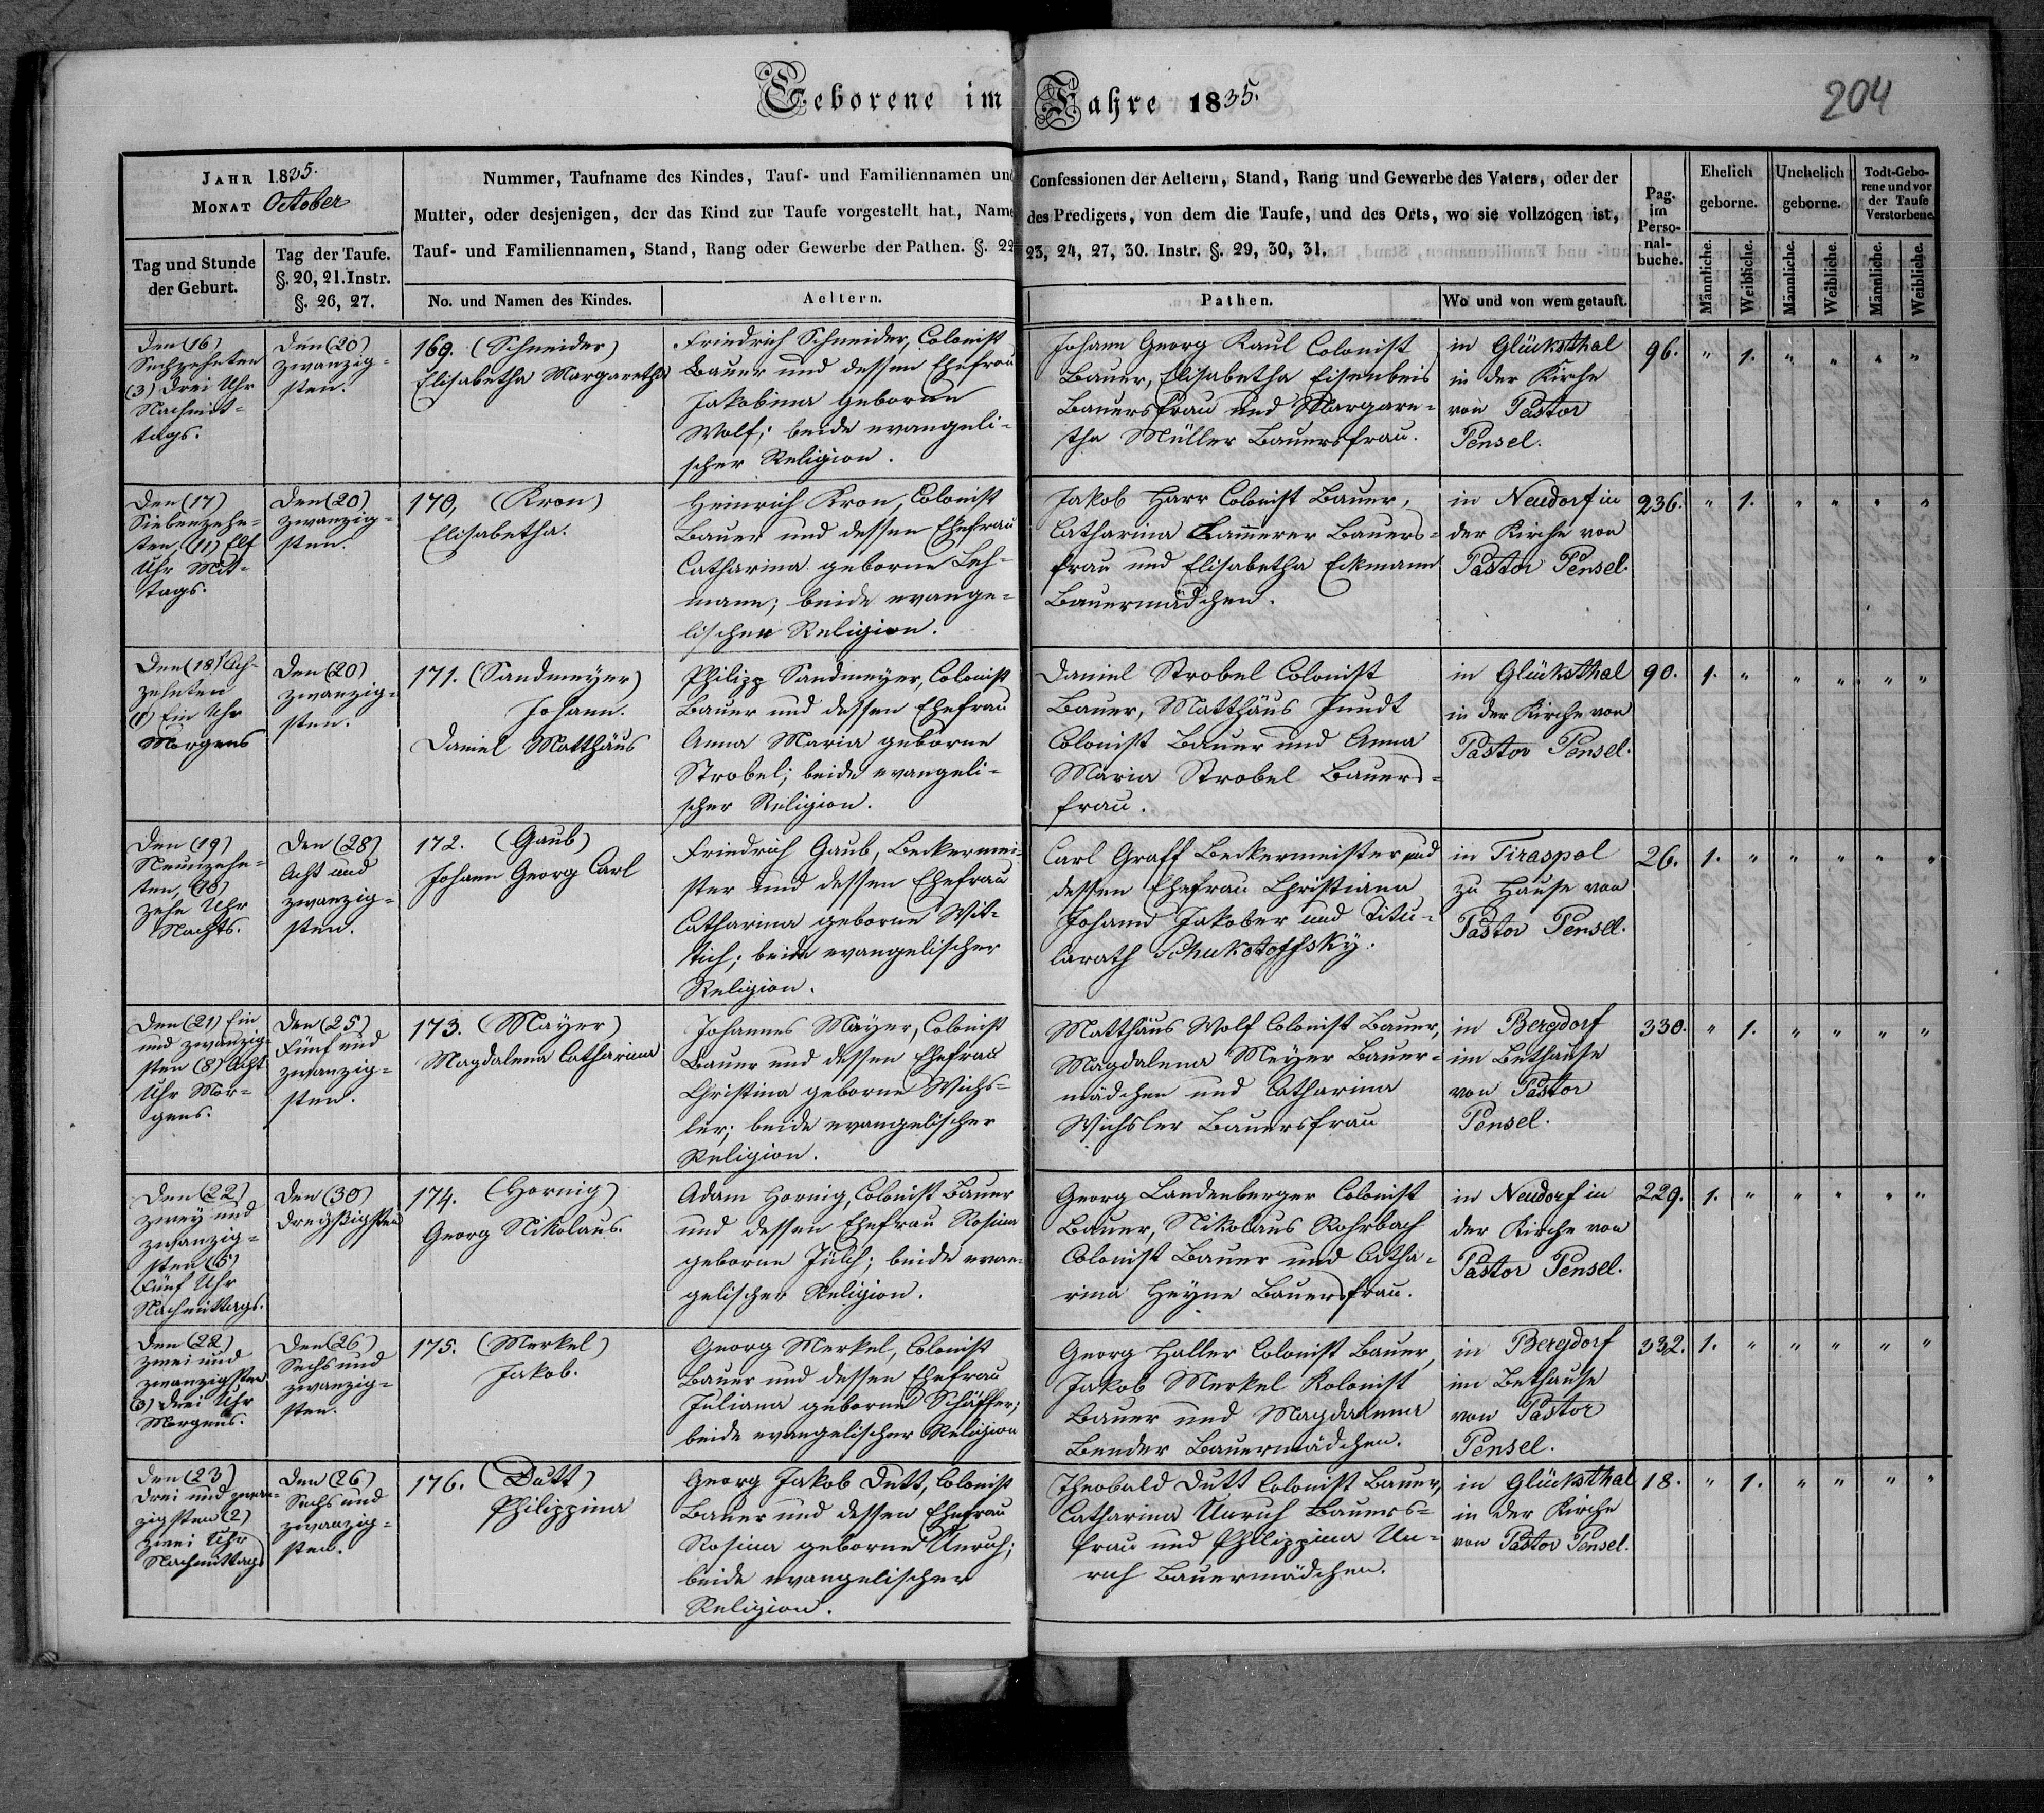 Geborene im Jahre 1835.
204
JAHR 1835.
MONAT October
Nummer, Taufname des Kindes, Tauf- und Familiennamen und
Mutter, oder desjenigen, der das Kind zur Taufe vorgestellt hat, Name
Tauf- und Familiennamen, Stand, Rang oder Gewerbe der Pathen. §. 22
Confessionen der Aeltern, Stand, Rang und Gewerbe des Vaters, oder der
des Predigers, von dem die Taufe, und des Orts, wo sie vollzogen ist,
23, 24, 27, 30. Instr. §. 29, 30, 31.
Pag.
im
Perso-
nal-
buche.
Ehelich
geborne.
Unehelich
geborne.
Todt-Gebo-
rene und vor
der Taufe
Verstorbene.
Tag und Stunde
der Geburt.
Tag der Taufe.
§. 20, 21. Instr.
§. 26, 27.
No. und Namen des Kindes.
Aeltern.
Pathen.
Wo und von wem getauft.
Männliche.
Weibliche.
Männliche.
Weibliche.
Männliche.
Weibliche.
Den (16)
Sechzehnten
(3) Drei Uhr
Nachmit-
tags.
Den (20)
zwanzig-
sten.
169. (Schneider)
Elisabetha Margaretha
Friedrich Schneider, Colonist
Bauer und dessen Ehefrau
Jakobina geborne
Wolf; beide evangeli-
scher Religion.
Johann Georg Kaul Colonist
Bauer, Elisabetha Eisenbeis
Bauersfrau und Margare-
tha Müller Bauersfrau.
in Glücksthal
in der Kirche
von Pastor
Pensel.
96. " 1. " " " "
Den (17)
Siebenzehn-
ten, (11) Elf
Uhr Mit-
tags.
Den (20)
zwanzig-
sten.
170. (Kron)
Elisabetha.
Heinrich Kron, Colonist
Bauer und dessen Ehefrau
Catharina geborne Leh-
mann; beide evange-
lischer Religion.
Jakob Harr Colonist Bauer,
Catharina Kammerer Bauers-
frau und Elisabetha Eckmann
Bauermädchen.
in Neudorf in
der Kirche von
Pastor Pensel.
236. " 1. " " " "
Den (18) Ach-
zehnten
(1) Ein Uhr
Morgens
Den (20)
zwanzig-
sten.
171. (Sandmeyer)
Johann.
Daniel Matthäus
Philipp Sandmeyer, Colonist
Bauer und dessen Ehefrau
Anna Maria geborne
Strobel; beide evangeli-
scher Religion.
Daniel Strobel Colonist
Bauer, Matthäus Jundt
Colonist Bauer und Anna
Maria Strobel Bauers-
frau.
in Glücksthal
in der Kirche von
Pastor Pensel.
90. 1. " " " " "
Den (19)
Neunzehn-
ten, (10)
Zehn Uhr
Nachts.
Den (28)
Acht und
zwanzig-
sten.
172. (Gaub)
Johann Georg Carl
Friedrich Gaub, Beckermei-
ster und dessen Ehefrau
Catharina geborne Wit-
tich; beide evangelischer
Religion.
Carl Graff Beckermeister und
dessen Ehefrau Christiana
Johann Jakober und Titu-
larath Schukotoffsky.
in Tiraspol
zu Hause von
Pastor Pensel.
26. 1. " " " " "
Den (21) Ein
und zwanzig-
sten (8) Acht
Uhr Mor-
gens.
Den (25)
Fünf und
zwanzig-
sten.
173. (Mayer)
Magdalena Catharina
Johannes Mayer, Colonist
Bauer und dessen Ehefrau
Christina geborne Wichs-
ler; beide evangelischer
Religion.
Matthäus Wolf Colonist Bauer,
Magdalena Meyer Bauer-
mädchen und Catharina
Wichsler Bauersfrau
in Bergdorf
im Bethause
von Pastor
Pensel.
330. " 1. " " " "
Den (22)
Zwey und
zwanzig-
sten (5)
Fünf Uhr
Nachmittags.
Den (30)
Dreyßigsten
174. (Hornig)
Georg Nikolaus.
Adam Hornig, Colonist Bauer
und dessen Ehefrau Rosina
geborne Jülch; beide evan-
gelischer Religion.
Georg Landenberger Colonist
Bauer, Nikolaus Rohrbach
Colonist Bauer und Catha-
rina Heyne Bauersfrau.
in Neudorf in
der Kirche von
Pastor Pensel.
229. 1. " " " " "
Den (22)
Zwei und
zwanzigsten
(3) Drei Uhr
Morgens.
Den (26)
Sechs und
zwanzig-
sten.
175. (Merkel)
Jakob.
Georg Merkel, Colonist
Bauer und dessen Ehefrau
Juliana geborne Schäffer;
beide evangelischer Religion
Georg Haller Colonist Bauer,
Jakob Merkel Kolonist
Bauer und Magdalena
Bender Bauermädchen.
in Bergdorf
im Bethause
von Pastor
Pensel.
332. 1. " " " " "
Den (23)
Drei und zwan-
zigsten (2)
Zwei Uhr
Nachmittags
Den (26)
Sechs und
zwanzig-
sten.
176. (Dutt)
Philippina
Georg Jakob Dutt, Colonist
Bauer und dessen Ehefrau
Rosina geborne Unruh;
beide evangelischer
Religion.
Theobald Dutt Colonist Bauer,
Catharina Unruh Bauers-
frau und Philippina Un-
ruh Bauermädchen.
in Glücksthal
in der Kirche
von Pastor Pensel.
18. " 1. " " " "